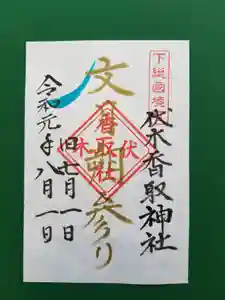 下総國
伏木香取神社
文月詣り
香取社
伏木
旧七月一日
令和元年八月一日